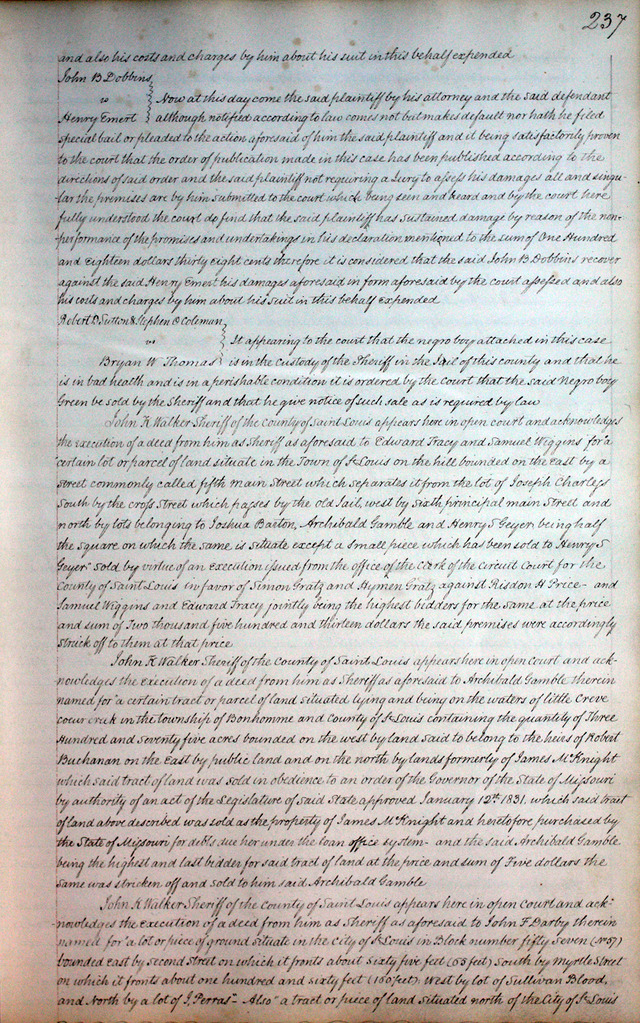 237
and also his costs and charges by him about his suit in this behalf expended
John B Dobbins
vs
Now at this day come the said plaintiff by his attorney and the said defendant
Henry Emert although notified according to law comes not but makes default nor hath he filed
special bail or pleaded to the action aforesaid of him the said plaintiff and it being satisfactorily proven
to the court that the order of publication made in this case has been published according to the
directions of said order and the said plaintiff not requiring a Jury to assess his damages all and singu-
lar the premises are by him submitted to the court which being seen and heard and by the court here
fully understood the court do find that the said plaintiff has sustained damage by reason of the non-
performance of the promises and undertakings in his declaration mentioned to the sum of One Hundred
and Eighteen dollars thirty eight cents therefore it is considered that the said John B Dobbins recover
against the said Henry Emert his damages aforesaid in form aforesaid by the court assessed and also
his costs and charges by him about his suit in this behalf expended
Robert D Sutton & Stephen O Coleman
vs
It appearing to the court that the negro boy attached in this case
Bryan W Thomas is in the custody of the Sheriff in the Jail of this county and that he
is in bad health and is in a perishable condition it is ordered by the court that the said Negro boy
Green be sold by the Sheriff and that he give notice of such sale as is required by law
John K Walker Sheriff of the county of Saint Louis appears here in open court and acknowledges
the execution of a deed from him as Sheriff as aforesaid to Edward Tracy and Samuel Wiggins for a
certain lot or parcel of land situate in the Town of St Louis on the hill bounded on the East by a
street commonly called fifth main Street which separates it from the lot of Joseph Charless
South by the cross Street which passes by the old Jail, west by Sixth principal main Street and
north by lots belonging to Joshua Barton, Archibald Gamble and Henry S Geyer being half
the square on which the same is situate except a small piece which has been sold to Henry S
Geyer" sold by virtue of an execution issued from the office of the Clerk of the circuit Court for the
County of Saint Louis in favor of Simon Gratz and Hymen Gratz against Risdon H Price - and
Samuel Wiggins and Edward Tracy jointly being the highest bidders for the same at the price
and sum of Two thousand five hundred and thirteen dollars the said premises were accordingly
struck off to them at that price
John K Walker Sheriff of the County of Saint Louis appears here in open court and ack-
nowledges the execution of a deed from him as Sheriff as aforesaid to Archibald Gamble therein
named for "a certain tract or parcel of land situated lying and being on the waters of little Creve
coeur creek in the township of Bonhomme and County of St Louis containing the quantity of Three
Hundred and Seventy five acres bounded on the west by land said to belong to the heirs of Robert
Buchanan on the East by public land and on the north by lands formerly of James McKnight
which said tract of land was sold in obedience to an order of the Governor of the State of Missouri
by authority of an act of the Legislature of said State approved January 12th 1831. which said tract
of land above described was sold as the property of James McKnight and heretofore purchased by
the State of Missouri for debts due her under the loan office system - and the said Archibald Gamble
being the highest and last bidder for said tract of land at the price and sum of Five dollars the
same was stricken off and sold to him said Archibald Gamble
John K Walker Sheriff of the County of Saint Louis appears here in open court and ack-
nowledges the execution of a deed from him as Sheriff as aforesaid to John F Darby therein
named for a lot or piece of ground situate in the City of St Louis in Block number fifty seven (No 57)
bounded East by second Street on which it fronts about Sixty five feet (65 feet) South by Myrtle Street
on which it fronts about one hundred and sixty feet (160 feet) West by lot of Sullivan Blood,
and North by a lot of J. Perras" Also "a tract or piece of land situated north of the City of St Louis